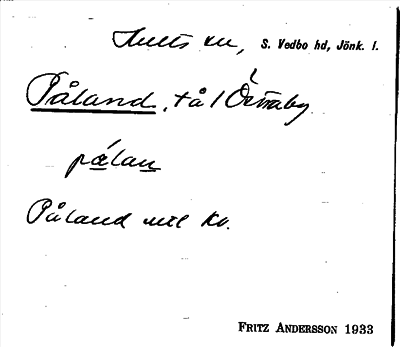 Hults sn, S. Vedbo hd, Jönk. l.
Påland, tå / Östraby
pålan
Påland utl ko.
FRITZ ANDERSSON 1933